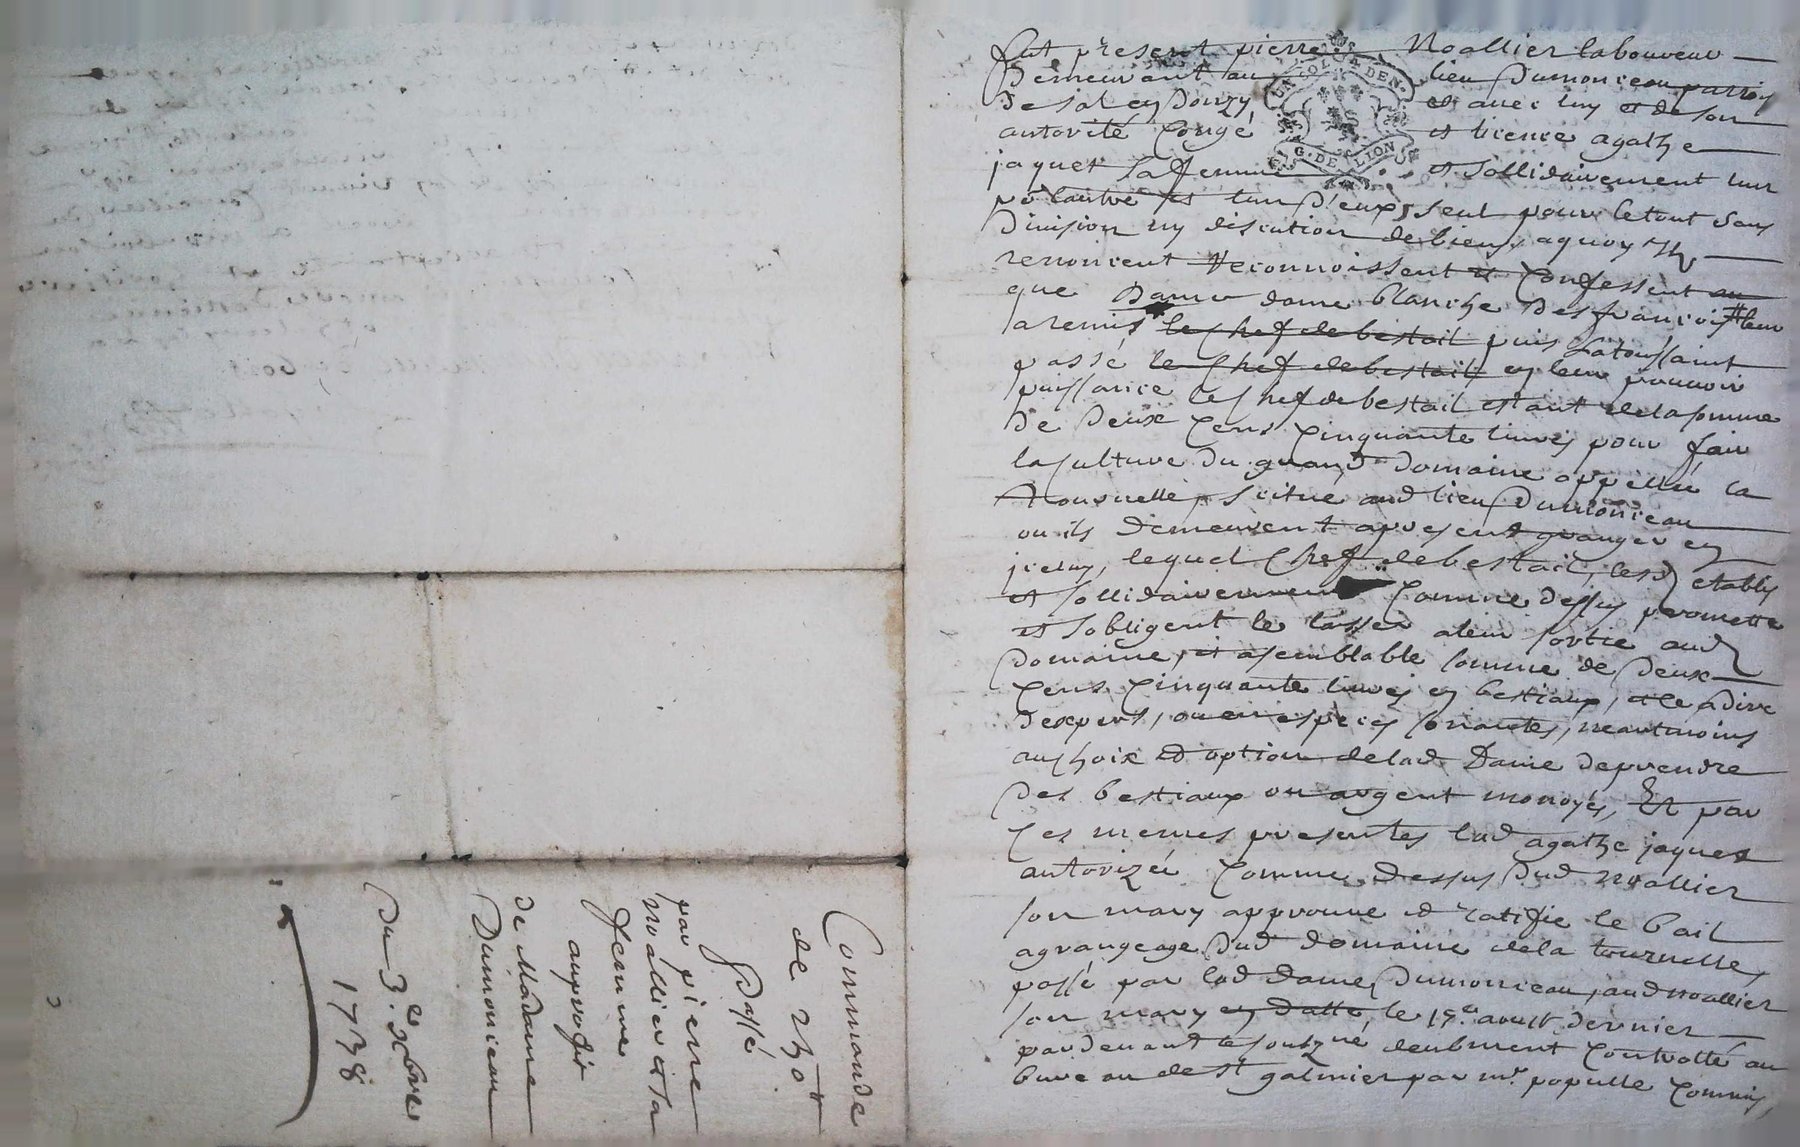 fut present pierre Noallier laboureur
Demeurant au lieu Dumonceau parroisse
de sal en Donzy et avec luy et de son
autorité Congé et licence agathe
jaquet sa femme et sollidairement lun
pr lautre et lun d'eux seul pour le tout sans
Division ny discution de biens, a quoy ils
renoncent Reconnoissent et Confessent
que Dame dame blanche Desfrancois leur
a remis le Chef de bestail puis la toussaint
passé le Chef de bestail en leur pouvoir
puissance le Chef de bestail estant de la somme
De Deux Cens Cinquante livres pour faire
la culture du grand domaine appellée la
Tournelle, scitué aud lieu Dumonceau
ou ils demeurent apresent granger en
jceluy, lequel Chef de bestail, lesd etablis
et sollidairement Comme dessus promette
et sobligent le laisser a leur sortie aud
Domaine, et a semblable somme de Deux
Cens Cinquante livres en bestiaux, et le a dire
dexpers, ou en especes sonnantes, neantmoins
au choix et option de lad Dame de prendre
Des bestiaux ou argent monoyés, Et par
Ces memes presentes lad agathe jaquet
autorizée Comme dessus Dud noallier
son mary approuve et ratifie le bail
a grangeage Dud domaine de la tournelle,
passé par lad dame Dumonceau, aud noallier
son mary en datte, le 15e aoust dernier
pardevant le sousgne, deubment Controllé au
bureau de st galmier par mr. populle Commis,
UN SOL QUA DEN.
G. DE LION
Commande
de 250tt
Passé
par pierre
noallier et sa
femme
au proffit
de Madame
Dumonceau
Du 3.e xbre
1738